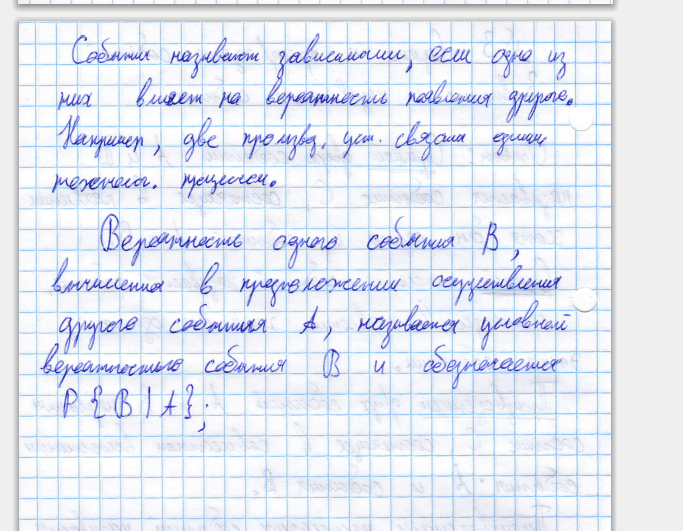 События называют зависимыми, если одно из
них влияет на вероятность появления другого.
Например, две производ. уст. связаны единым
технолог. процессом.
Вероятность одного события B,
вычисленная в предположении осуществления
другого события A, называется условной
вероятностью события B и обозначается
P { B | A };